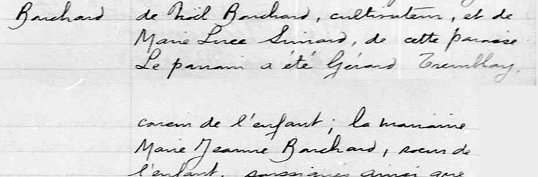 Bouchard de Noël Bouchard, cultivateur, et de
Marie Luce Simard, de cette paroisse
Le parrain a été Gérard Tremblay,
cousin de l'enfant; la marraine
Marie Jeanne Bouchard, soeur de
l'enfant, soussignés ainsi que